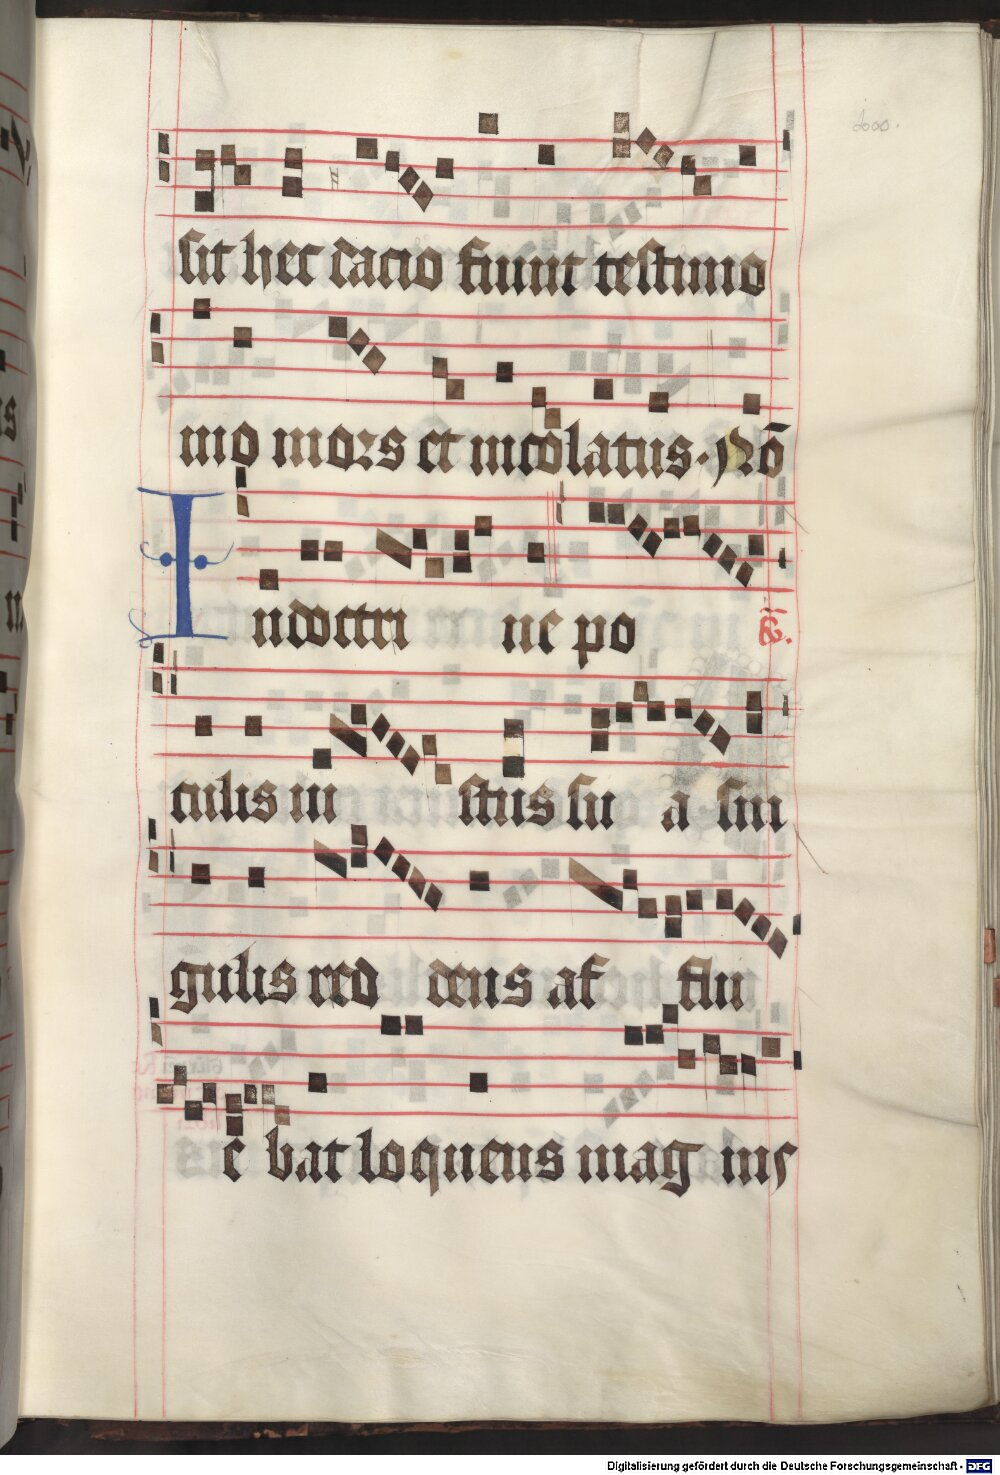 sit hec dacio fiunt testimo
nio mors et incolatus. Nō
Indoctri ne po
culis iu stus su a sin
gulis red dens af flu
e bat loquens mag nis
Digitalisierung gefördert durch die Deutsche Forschungsgemeinschaft - DFG